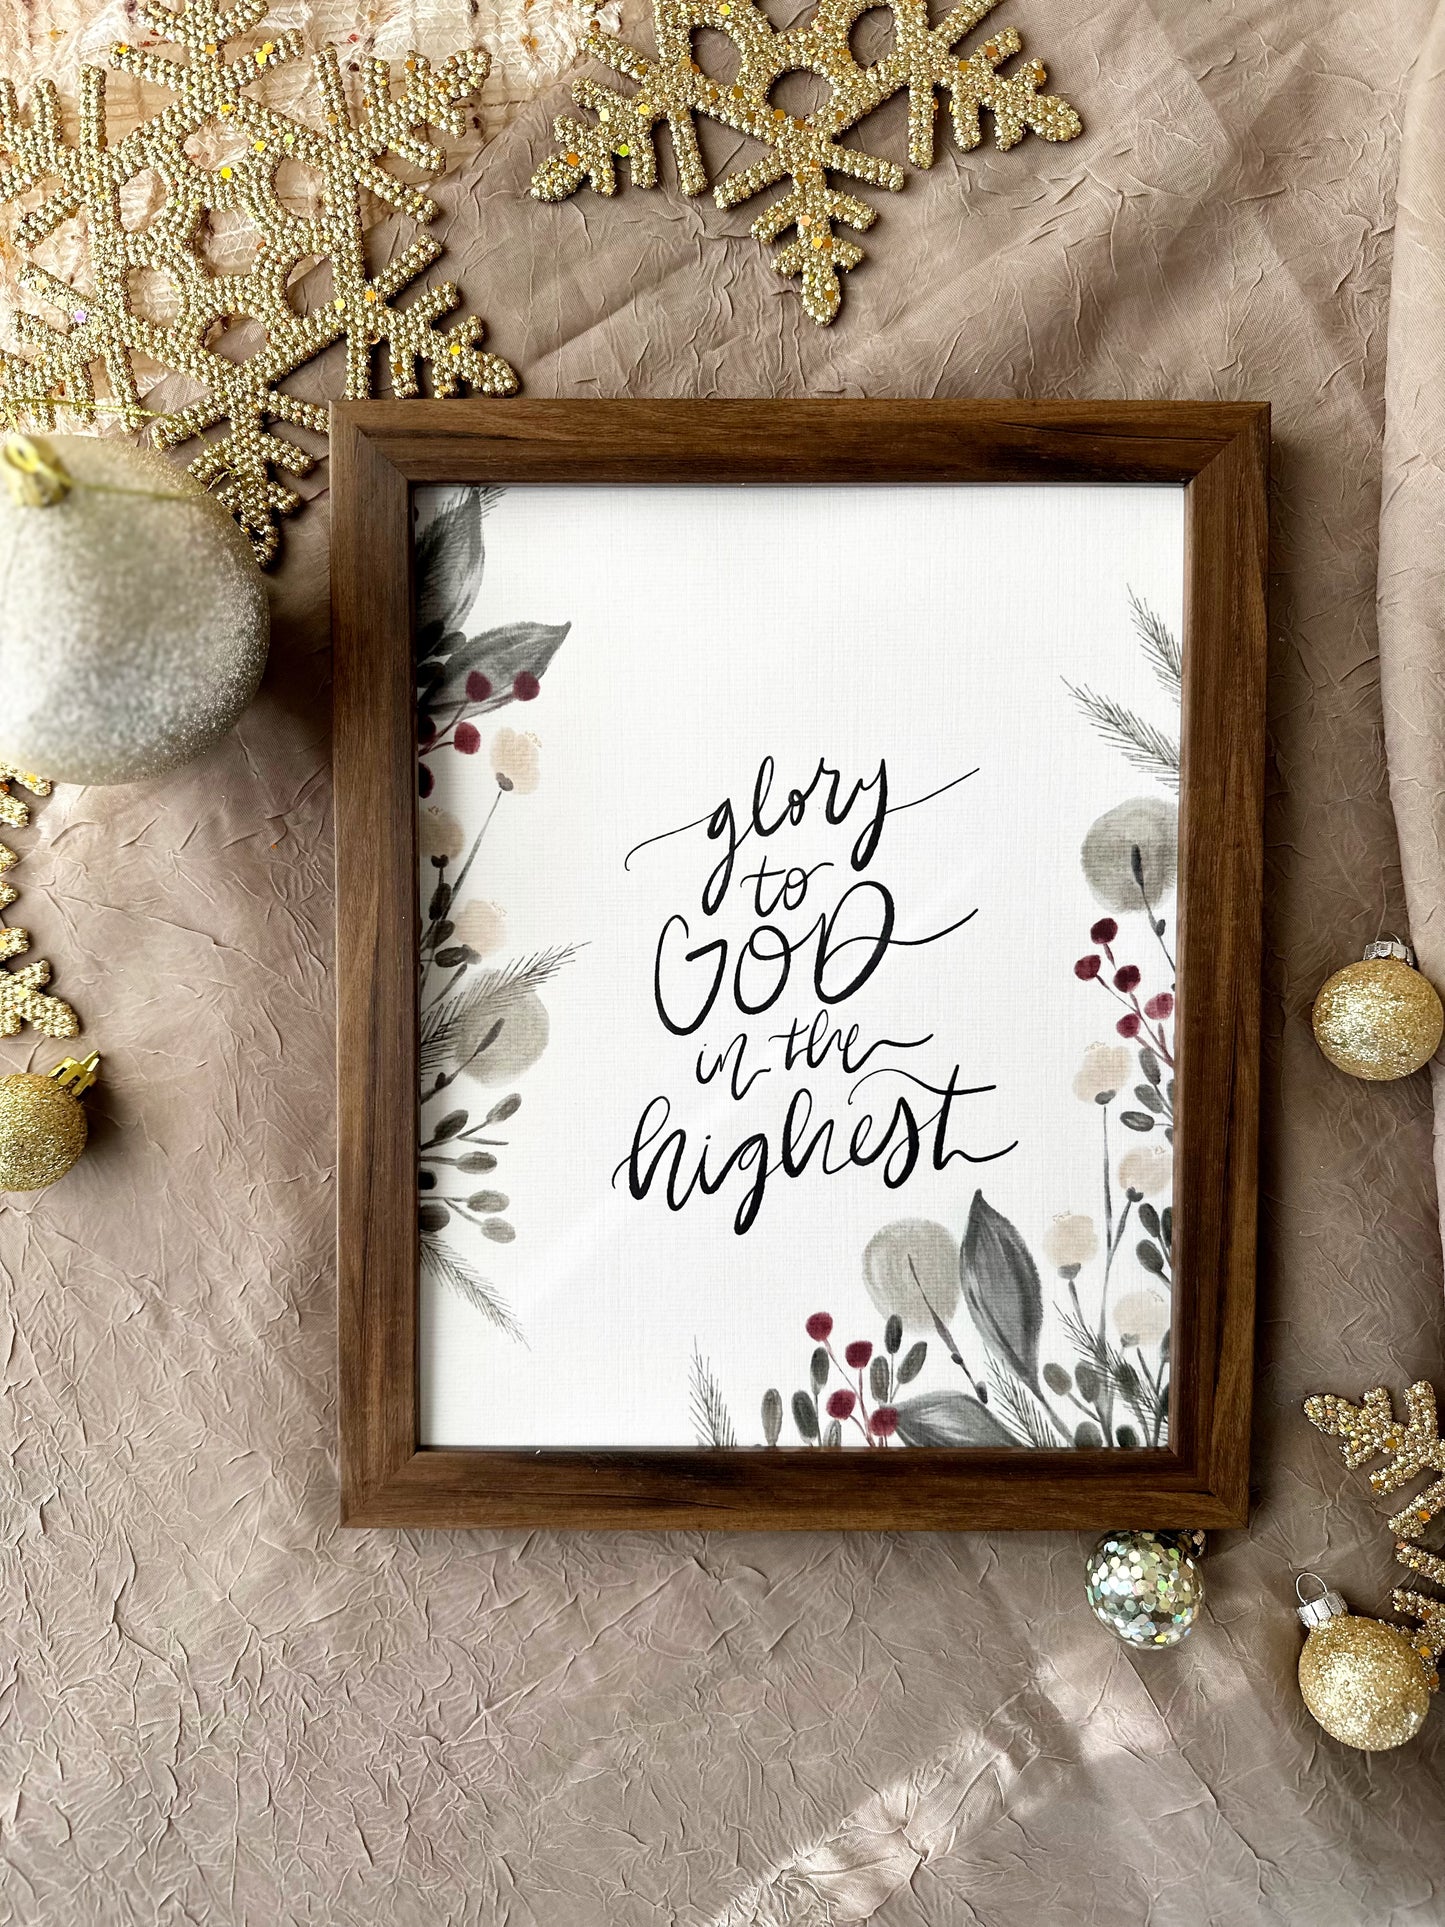 glory
to
GOD
in the
highest